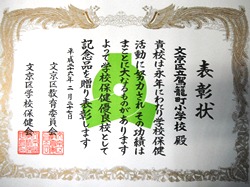 表彰状
文京区立駕籠町小学校 殿
貴校は永年にわたり学校保健
活動に努力されその功績は
まことに大なるものがあります
よって学校保健優良校として
記念品を贈り表彰します
平成二十六年二月二十七日
文京区教育委員会
文京区学校保健会